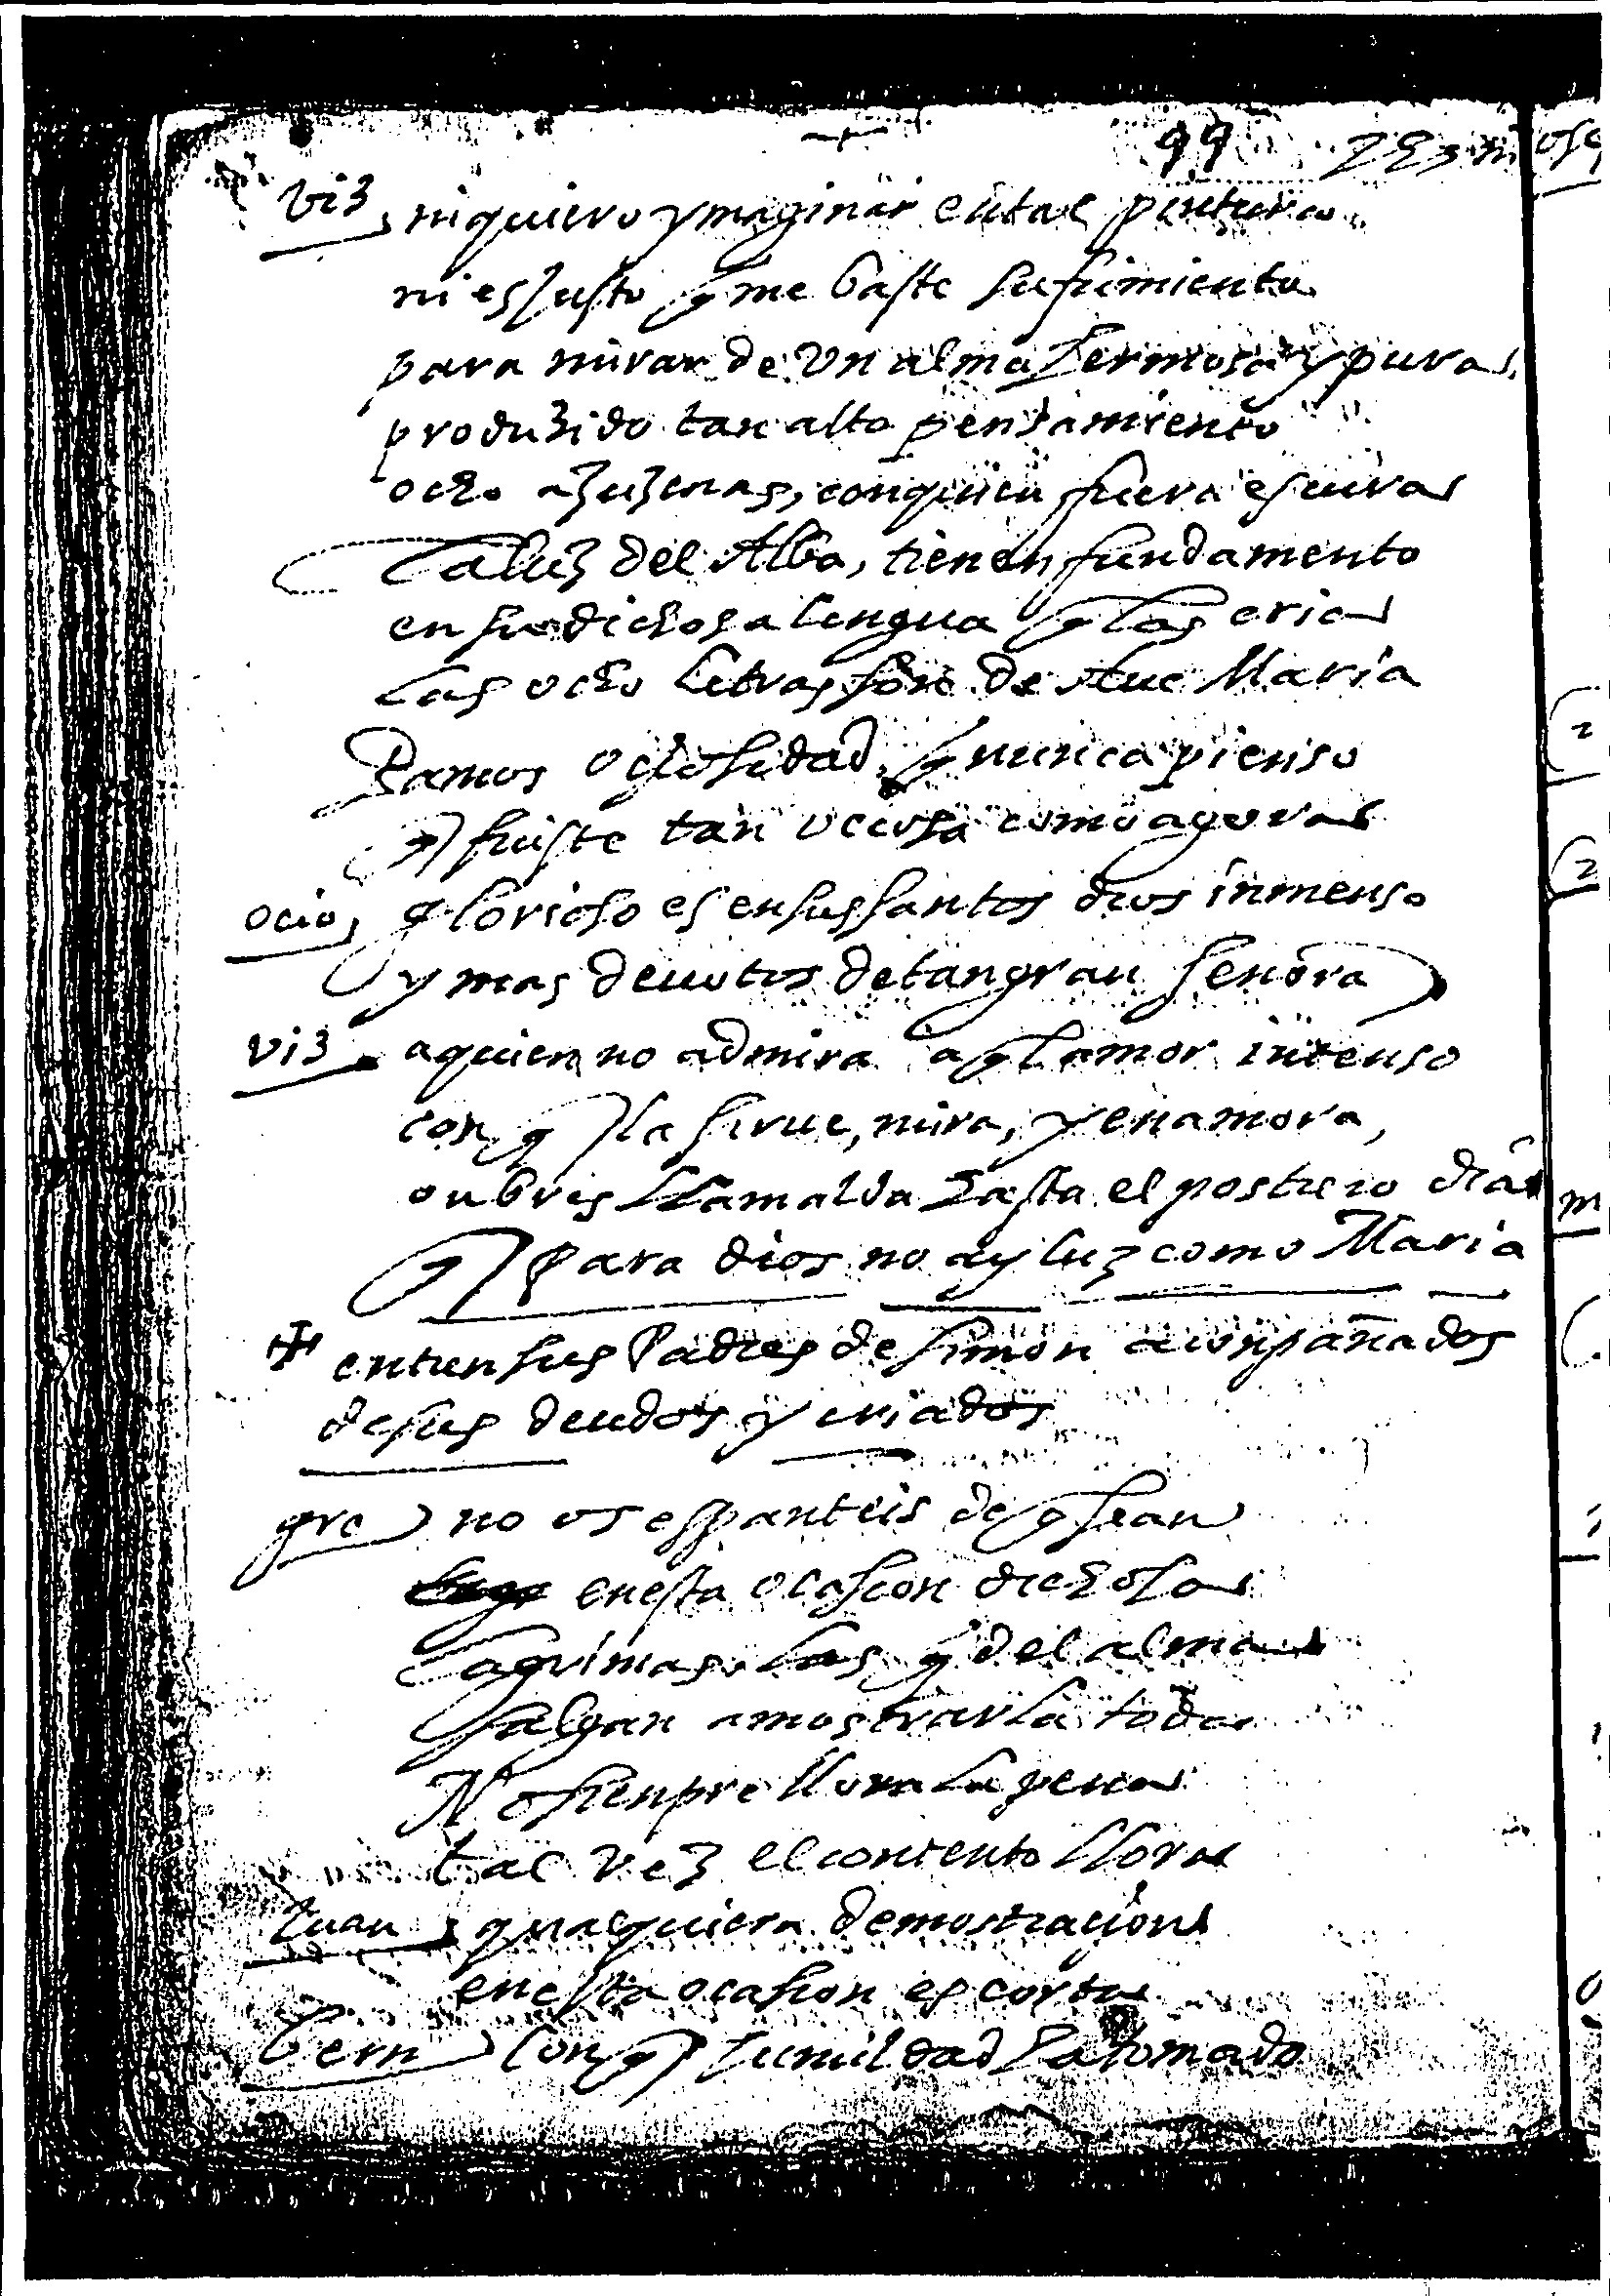 99
viz ni quiero ymaginar en tal pintura
ni es justo q me baste sufrimiento
para mirar de un alma hermosa y pura
produzido tan alto pensamiento
ocho azuzenas, con quien fuera escura
la luz del Alba, tienen fundamento
en su dichosa lengua q las cria
las ocho letras son de Aue Maria
Vamos ociosidad, q nunca pienso
q fuiste tan ociosa como agora
ocio glorioso es en sus santos dios inmenso
y mas deuotos de tan gran señora
viz a quien no admira aql amor intenso
con q la sirue, mira, y enamora,
hasta el postrero dia
q para dios no ay luz como Maria
entren sus Padres de Simon aconpañados
de sus deudos y criados
gre no os espanteis de q sean
en esta ocasion dichosa
lagrimas las q del alma
salgan a mostrarla toda
No sienpre llora la pena
tal vez el contento llora
Juan qualquiera demostracion
en esta ocasion es corta
bern Con q humildad ha tomado